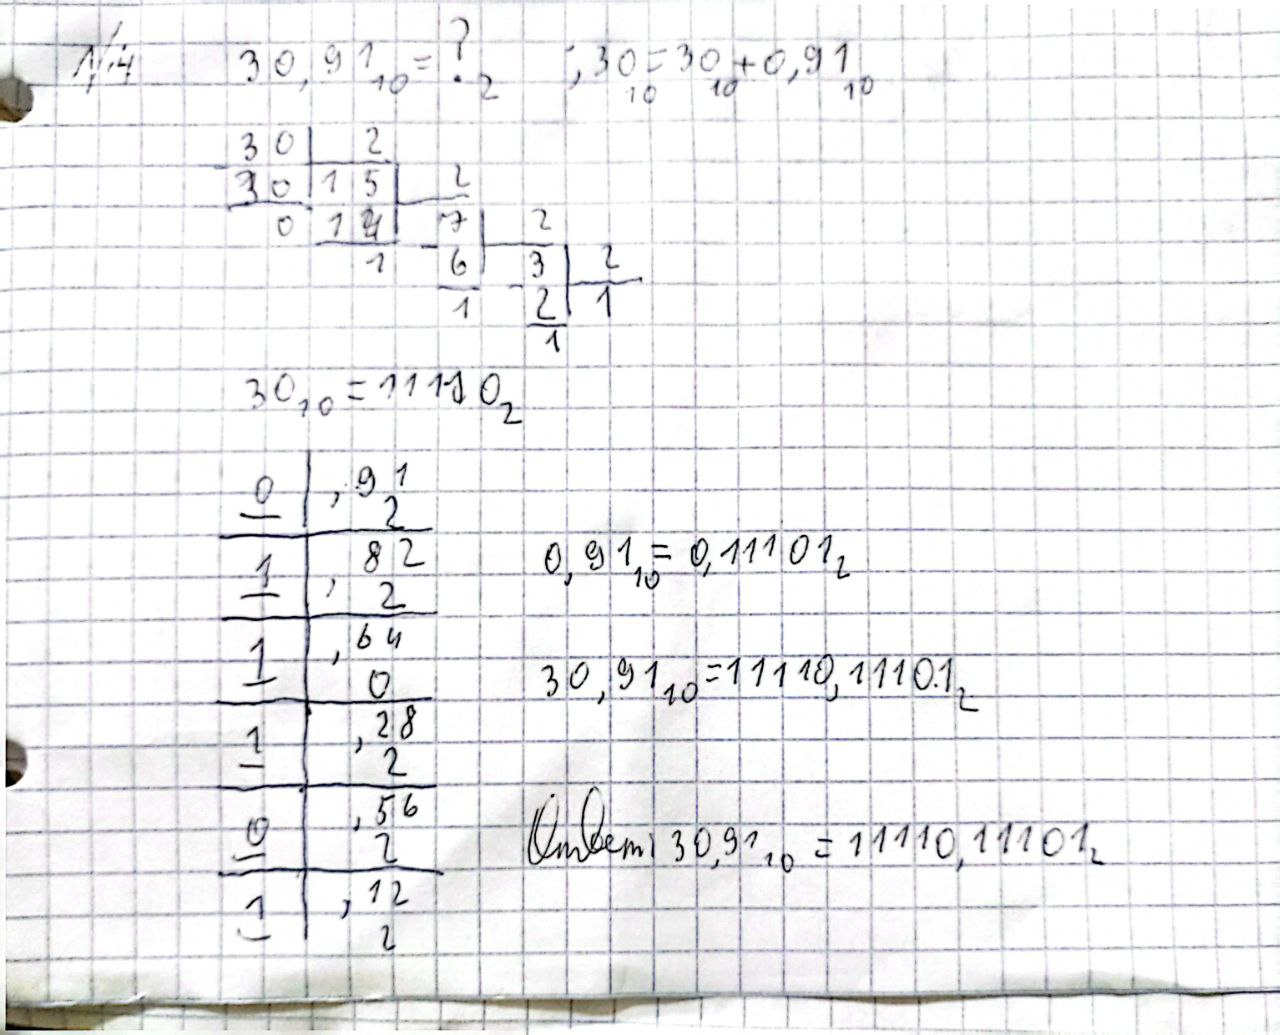 1/.4 30,91₁₀ = ?₂ ; 30₁₀ = 30₁₀ + 0,91₁₀
30 2
30 15 2
0 14 7 2
1 6 3 2
1 2 1
1
30₁₀ = 11110₂
0 ,91
2
1 , 82
2
1 ,64
0
1 ,28
2
0 ,56
2
1 ,12
2
0,91₁₀ = 0,11101₂
30,91₁₀ = 11110,11101₂
Ответ: 30,91₁₀ = 11110,11101₂